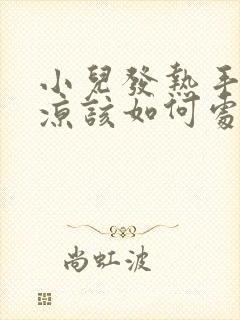 小兒發熱手
涼該如何處
尚虹波